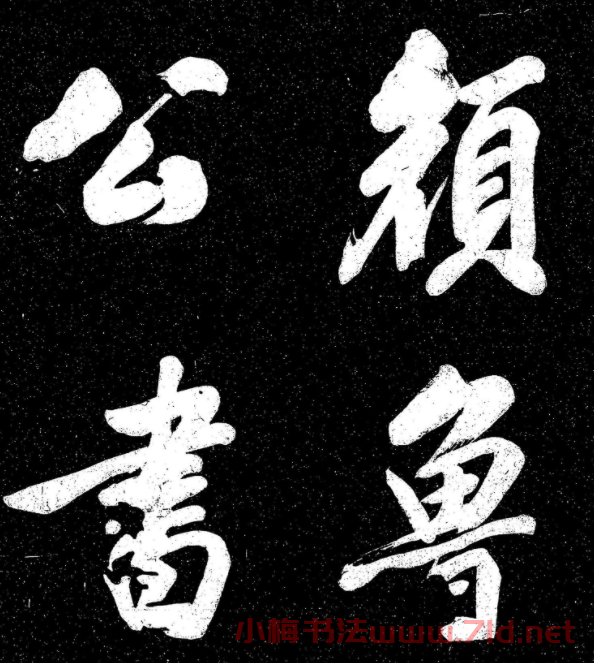 顏魯
公書
小梅书法www.7ld.net